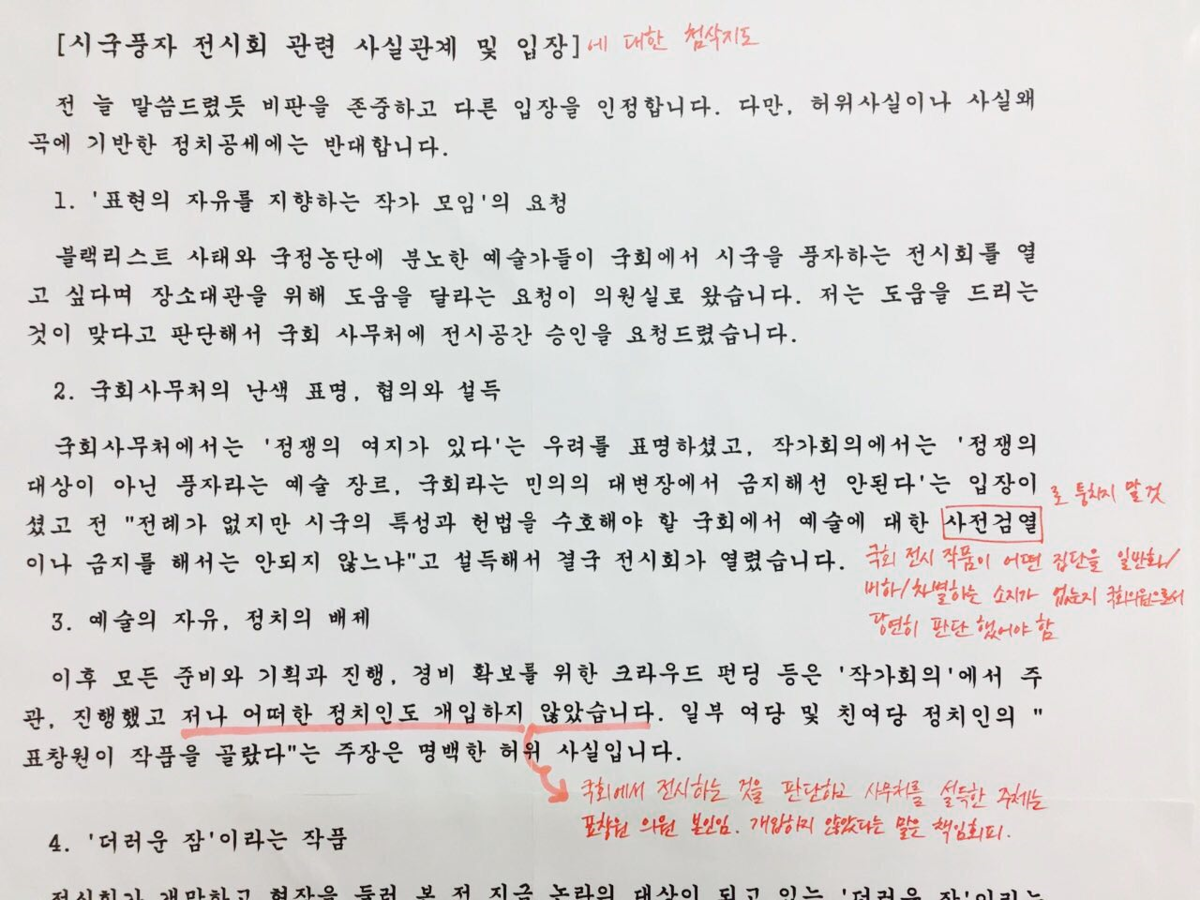 [시국풍자 전시회 관련 사실관계 및 입장]에 대한 첨삭지도
전 늘 말씀드렸듯 비판을 존중하고 다른 입장을 인정합니다. 다만, 허위사실이나 사실왜
곡에 기반한 정치공세에는 반대합니다.
1. '표현의 자유를 지향하는 작가 모임'의 요청
블랙리스트 사태와 국정농단에 분노한 예술가들이 국회에서 시국을 풍자하는 전시회를 열
고 싶다며 장소대관을 위해 도움을 달라는 요청이 의원실로 왔습니다. 저는 도움을 드리는
것이 맞다고 판단해서 국회 사무처에 전시공간 승인을 요청드렸습니다.
2. 국회사무처의 난색 표명, 협의와 설득
국회사무처에서는 '정쟁의 여지가 있다'는 우려를 표명하셨고, 작가회의에서는 '정쟁의
대상이 아닌 풍자라는 예술 장르, 국회라는 민의의 대변장에서 금지해선 안된다'는 입장이
셨고 전 "전례가 없지만 시국의 특성과 헌법을 수호해야 할 국회에서 예술에 대한 사전검열
로 퉁치지 말 것
이나 금지를 해서는 안되지 않느냐"고 설득해서 결국 전시회가 열렸습니다.
국회 전시 작품이 어떤 집단을 일반화/
비하/차별하는 소지가 없는지 국회의원으로서
당연히 판단했어야 함
3. 예술의 자유, 정치의 배제
이후 모든 준비와 기획과 진행, 경비 확보를 위한 크라우드 펀딩 등은 '작가회의'에서 주
관, 진행했고 저나 어떠한 정치인도 개입하지 않았습니다. 일부 여당 및 친여당 정치인의 "
표창원이 작품을 골랐다"는 주장은 명백한 허위 사실입니다.
국회에서 전시하는 것을 판단하고 사무처를 설득한 주체는
표창원 의원 본인임. 개입하지 않았다는 말은 책임회피.
4. '더러운 잠'이라는 작품
전시회가 개막하고 현장을 둘러 본 전 지금 논란의 대상이 되고 있는 '더러운 잠'이라는